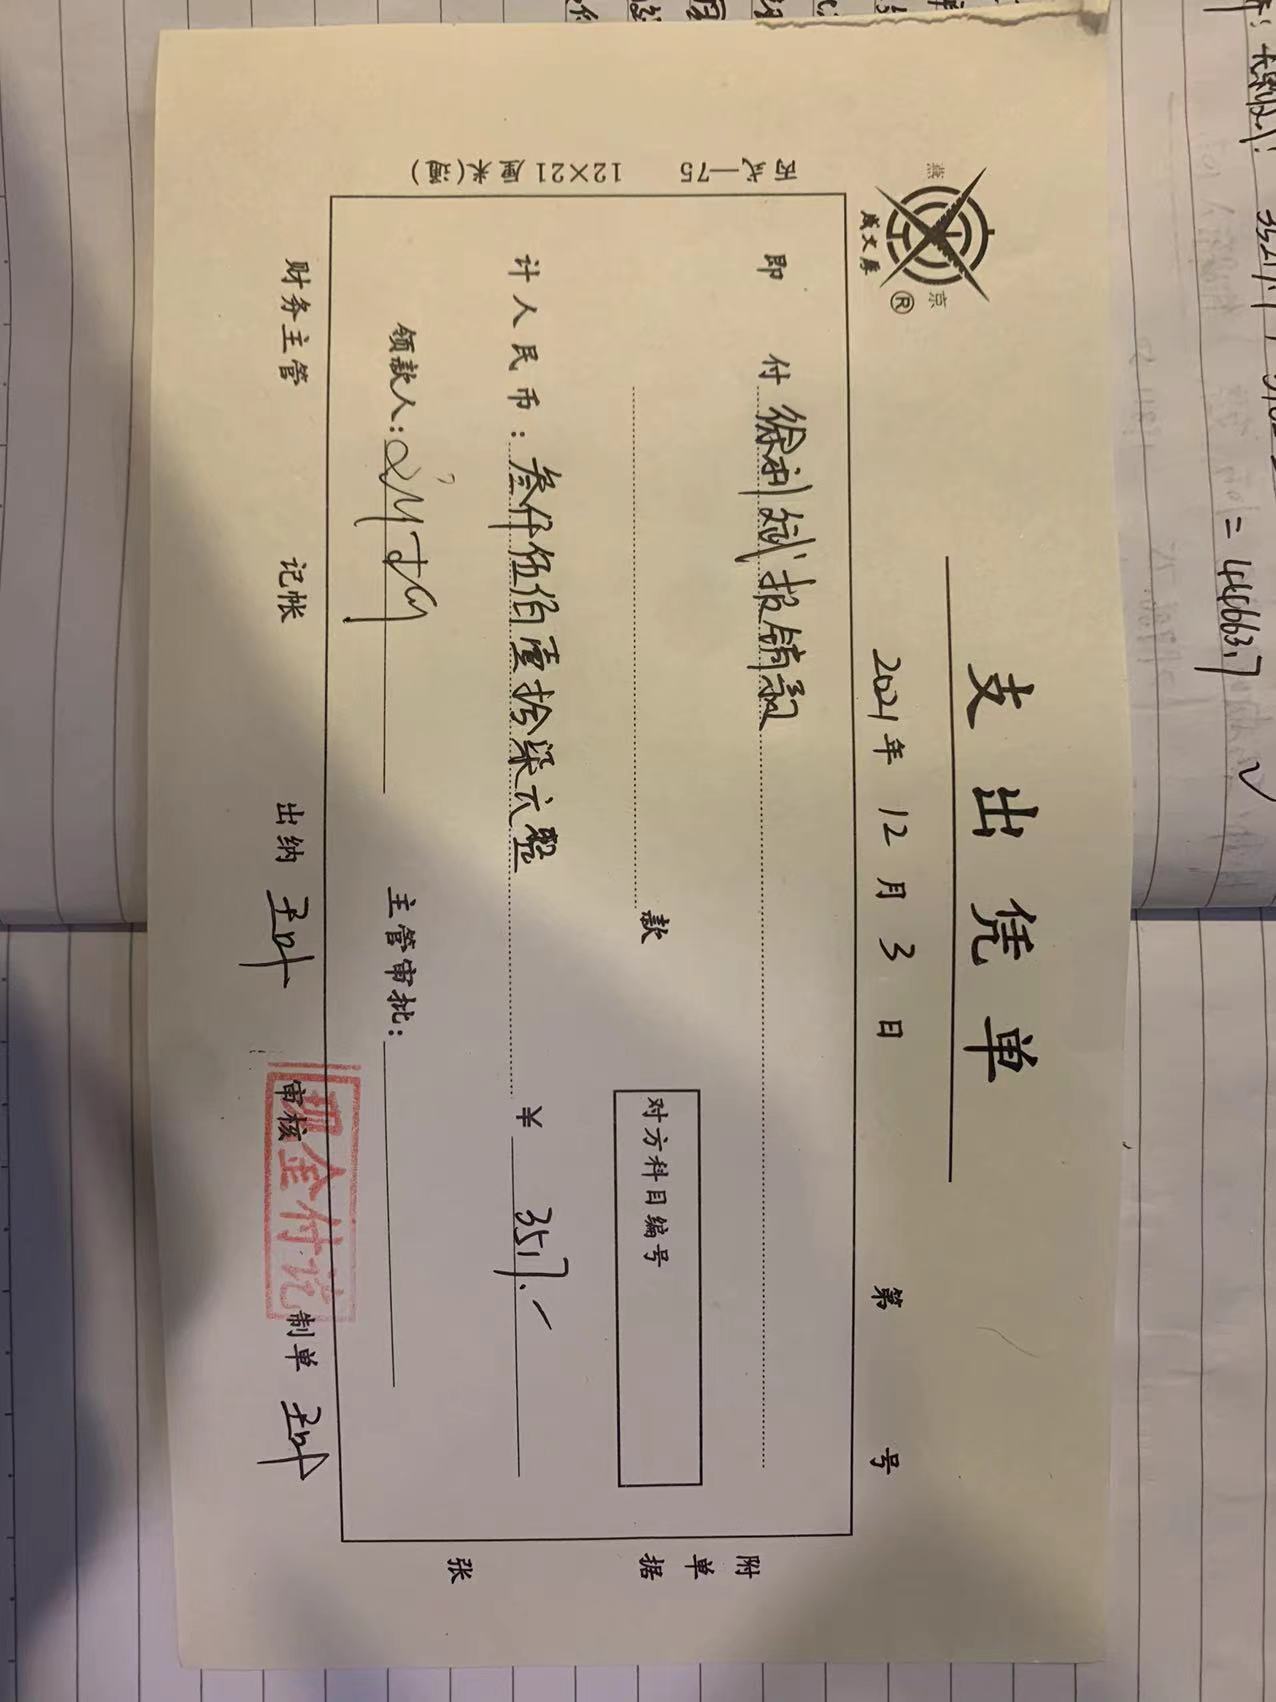 支出凭单
2021年 12月 3日 第 号
燕京
成文厚
®
即 付 徐利斌报销款
款
对方科目编号
计人民币：叁仟伍佰壹拾柒元整 ¥ 3517.一
领款人： 主管审批：
财务主管 记帐 出纳 审核 制单
现金付讫
附单据 张
丙式—75 12×21厘米(通)
= 44663.7